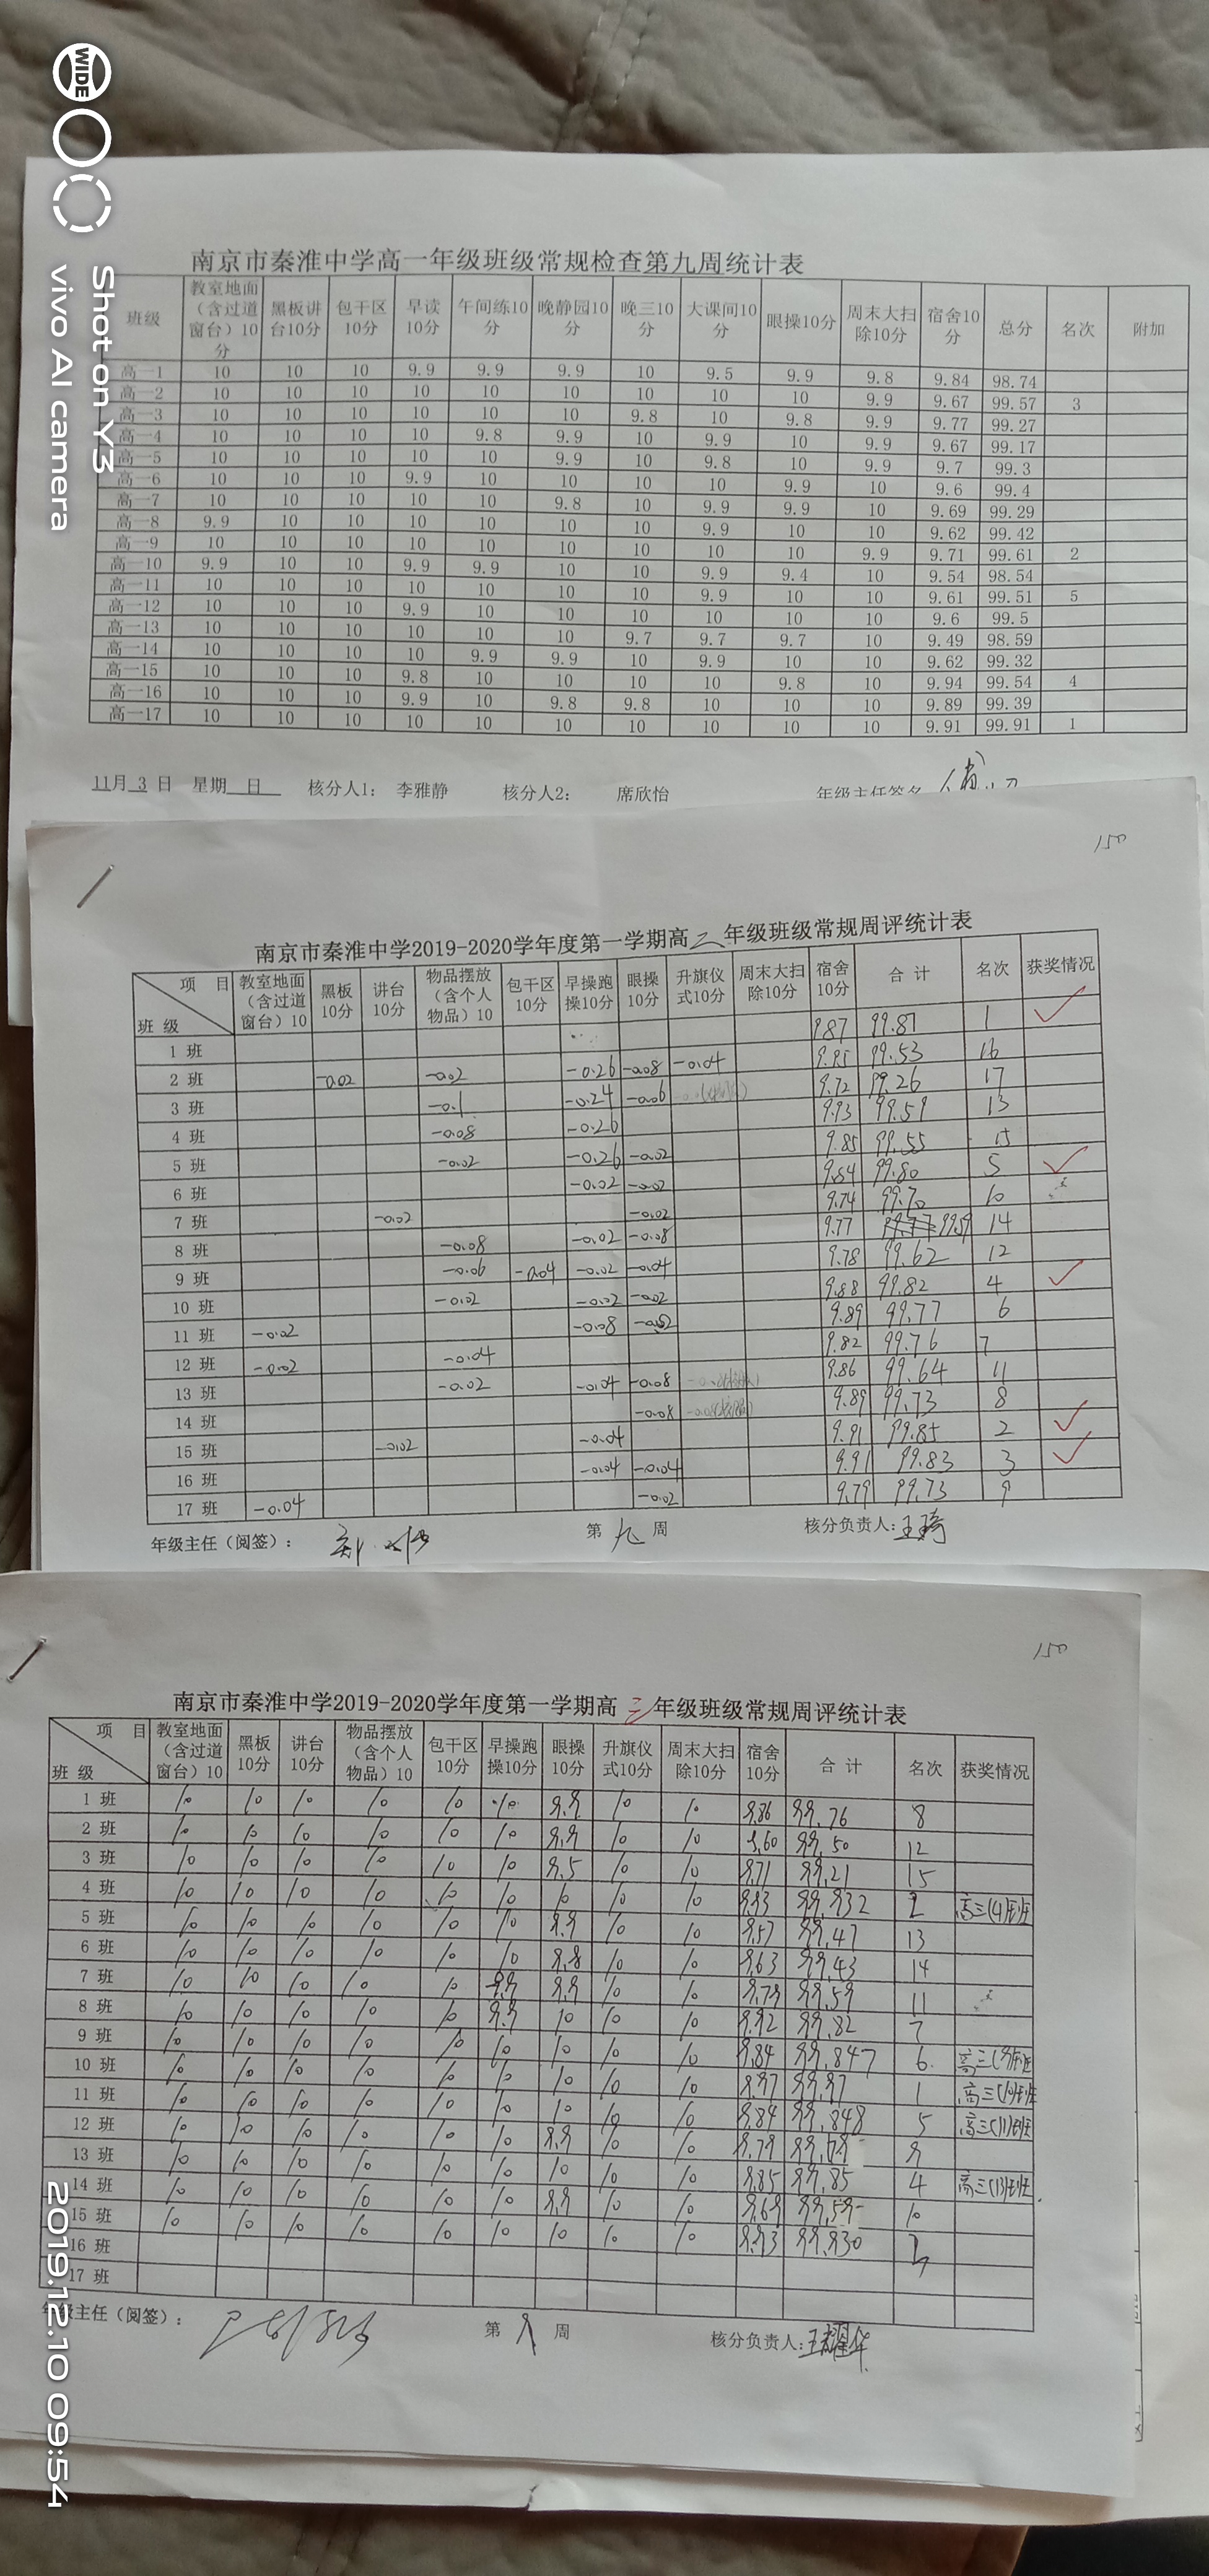 WIDE
Shot on Y3
vivo AI camera
南京市秦淮中学高一年级班级常规检查第九周统计表
班级 教室地面（含过道窗台）10分 黑板讲台10分 包干区10分 早读10分 午间练10分 晚静园10分 晚三10分 大课间10分 眼操10分 周末大扫除10分 宿舍10分 总分 名次 附加
高一1 10 10 10 9.9 9.9 9.9 10 9.5 9.9 9.8 9.84 98.74
高一2 10 10 10 10 10 10 10 10 10 9.9 9.67 99.57 3
高一3 10 10 10 10 10 10 9.8 10 9.8 9.9 9.77 99.27
高一4 10 10 10 10 9.8 9.9 10 9.9 10 9.9 9.67 99.17
高一5 10 10 10 10 10 9.9 10 9.8 10 9.9 9.7 99.3
高一6 10 10 10 9.9 10 10 10 10 9.9 10 9.6 99.4
高一7 10 10 10 10 10 9.8 10 9.9 9.9 10 9.69 99.29
高一8 9.9 10 10 10 10 10 10 9.9 10 10 9.62 99.42
高一9 10 10 10 10 10 10 10 10 10 9.9 9.71 99.61 2
高一10 9.9 10 10 9.9 9.9 10 10 9.9 9.4 10 9.54 98.54
高一11 10 10 10 10 10 10 10 9.9 10 10 9.61 99.51 5
高一12 10 10 10 9.9 10 10 10 10 10 10 9.6 99.5
高一13 10 10 10 10 10 10 9.7 9.7 9.7 10 9.49 98.59
高一14 10 10 10 10 9.9 9.9 10 9.9 10 10 9.62 99.32
高一15 10 10 10 9.8 10 10 10 10 9.8 10 9.94 99.54 4
高一16 10 10 10 9.9 10 9.8 9.8 10 10 10 9.89 99.39
高一17 10 10 10 10 10 10 10 10 10 10 9.91 99.91 1
11月 3 日 星期 日 核分人1： 李雅静 核分人2： 席欣怡 年级主任签名
150
南京市秦淮中学2019-2020学年度第一学期高二年级班级常规周评统计表
项 目 班 级 教室地面（含过道窗台）10 黑板10分 讲台10分 物品摆放（含个人物品）10 包干区10分 早操跑操10分 眼操10分 升旗仪式10分 周末大扫除10分 宿舍10分 合 计 名次 获奖情况
1 班 9.87 99.87 1 ✓
2 班 -0.02 -0.02 -0.26 -0.08 -0.04 9.85 99.53 16
3 班 -0.1 -0.24 -0.06 9.72 99.26 17
4 班 -0.08 -0.26 9.93 99.59 13
5 班 -0.02 -0.26 -0.02 9.85 99.55 15
6 班 -0.02 -0.02 9.84 99.80 5 ✓
7 班 -0.02 -0.02 9.74 99.70 10
8 班 -0.08 -0.02 -0.08 9.77 99.59 14
9 班 -0.06 -0.04 -0.02 -0.04 9.78 99.62 12
10 班 -0.02 -0.02 -0.02 9.88 99.82 4 ✓
11 班 -0.02 -0.08 -0.02 9.89 99.77 6
12 班 -0.02 -0.04 9.82 99.76 7
13 班 -0.02 -0.04 -0.08 9.86 99.64 11
14 班 -0.08 9.89 99.73 8
15 班 -0.02 -0.04 9.91 99.85 2 ✓
16 班 -0.04 -0.04 9.91 99.83 3 ✓
17 班 -0.04 -0.02 9.79 99.73 9
年级主任（阅签）： 第 九 周 核分负责人：王琦
150
南京市秦淮中学2019-2020学年度第一学期高三年级班级常规周评统计表
项 目 班 级 教室地面（含过道窗台）10 黑板10分 讲台10分 物品摆放（含个人物品）10 包干区10分 早操跑操10分 眼操10分 升旗仪式10分 周末大扫除10分 宿舍10分 合 计 名次 获奖情况
1 班 10 10 10 10 10 10 9.9 10 10 9.86 99.76 8
2 班 10 10 10 10 10 10 9.9 10 10 9.60 99.50 12
3 班 10 10 10 10 10 10 9.5 10 10 9.71 99.21 15
4 班 10 10 10 10 10 10 10 10 10 9.93 99.932 2 高三(4)班
5 班 10 10 10 10 10 10 9.9 10 10 9.57 99.47 13
6 班 10 10 10 10 10 10 9.8 10 10 9.63 99.43 14
7 班 10 10 10 10 10 9.9 9.9 10 10 9.79 99.59 11
8 班 10 10 10 10 10 9.9 10 10 10 9.92 99.82 7
9 班 10 10 10 10 10 10 10 10 10 9.84 99.847 6 高三(9)班
10 班 10 10 10 10 10 10 10 10 10 9.97 99.97 1 高三(10)班
11 班 10 10 10 10 10 10 10 10 10 9.84 99.848 5 高三(11)班
12 班 10 10 10 10 10 10 9.9 10 10 9.79 99.69 9
13 班 10 10 10 10 10 10 10 10 10 9.85 99.85 4 高三(13)班
14 班 10 10 10 10 10 10 9.9 10 10 9.69 99.59 10
15 班 10 10 10 10 10 10 10 10 10 9.93 99.930
16 班
17 班
年级主任（阅签）： 第 九 周 核分负责人：王耀华
2019.12.10 09:54